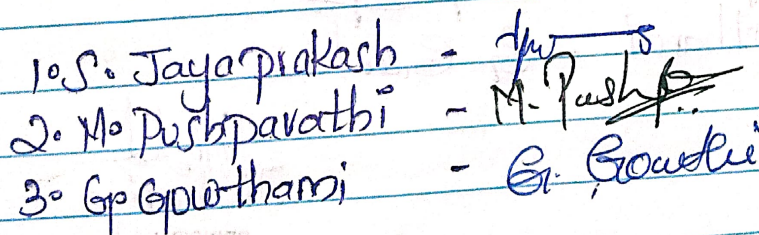 1. S. Jayaprakash -
2. M. Pushpavathi - M. Pushpa
3. G. Gowthami - G. Gowthi